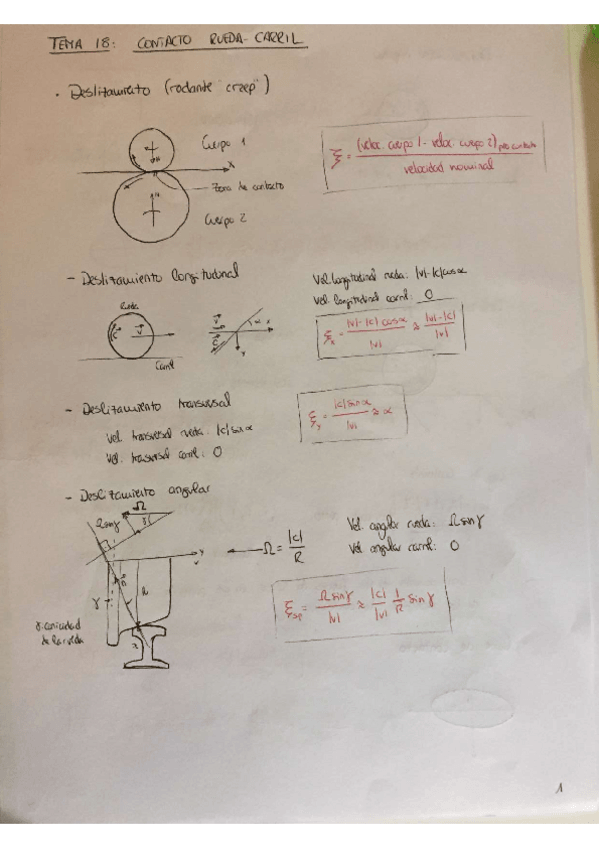 TEMA 18: CONTACTO RUEDA-CARRIL
· Deslizamiento (rodante "creep")
Cuerpo 1
x
Zona de contacto
Cuerpo 2
ξ = (veloc. cuerpo 1 - veloc. cuerpo 2) pto contacto / velocidad nominal
- Deslizamiento longitudinal
Rueda
Carril
Vel. longitudinal rueda: |v|-|c|cosα
Vel. longitudinal carril: 0
ξx = |v|-|c|cosα / |v| ≈ |v|-|c| / |v|
- Deslizamiento transversal
Vel. transversal rueda: |c|sinα
Vel. transversal carril: 0
ξy = |c|sinα / |v| ≈ α
- Deslizamiento angular
Ω sinγ
Ω
γ
y
R
γ: conicidad
de la rueda
Ω = |c| / R
Vel. angular rueda: Ω sinγ
Vel. angular carril: 0
ξsp = Ω sinγ / |v| ≈ |c| / |v| 1 / R sinγ
1